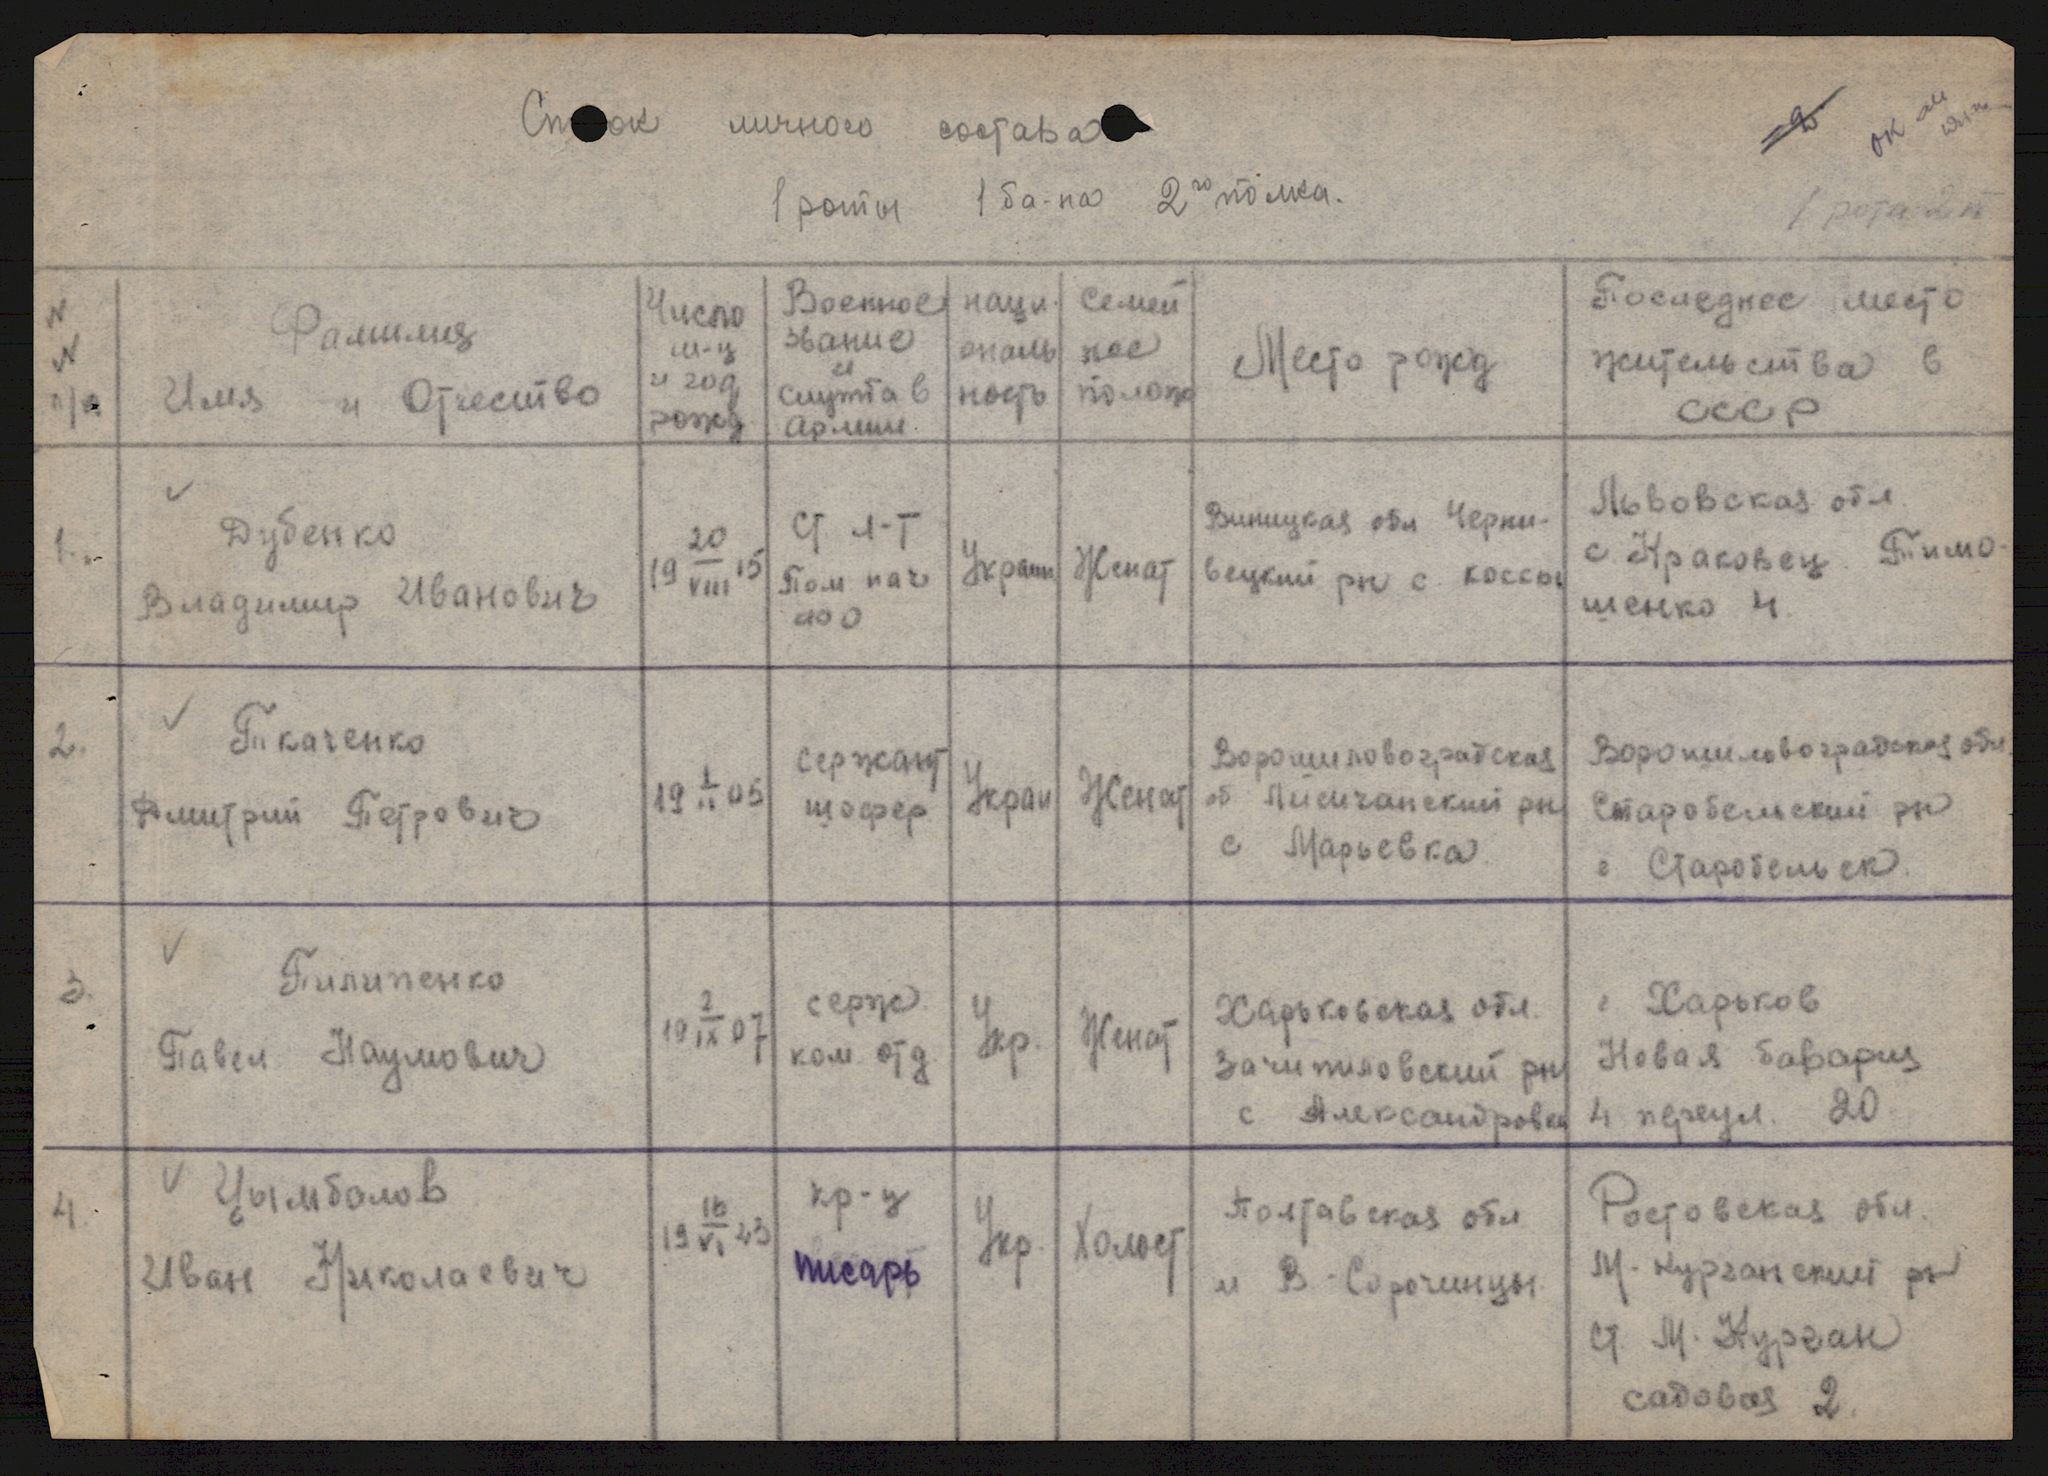 Список личного состава
1 роты 1 ба-на 2го полка.
1 рота 2 п
N N п/п
Фамилия
Имя и Отчество
Число
м-ц
и год
рожд
Военное
звание
и
служба в
армии.
наци-
ональ
ность
Семей
ное
полож
Место рожд
Последнее место
жительства в
СССР
1.
Дубенко
Владимир Иванович
19 20/VIII 15
Ст л-т
Пом нач
Украин
Женат
Виницкая обл Черни-
вецкий рн с. Коссы
Львовская обл.
с. Краковец. Тимо-
шенко 4.
2.
Ткаченко
Дмитрий Петрович
19 1/II 05
сержант
шофер
Украи
Женат
Ворошиловоградская
об Лисичанский рн
с Марьевка
Ворошиловоградская обл
Старобельский рн
г Старобельск.
3.
Пилипенко
Павел Наумович
19 2/IX 07
серж
ком. отд.
Укр.
Женат
Харьковская обл.
Зачипиловский рн
с Александровка
г Харьков
Новая бавария
4 переул. 20
4.
Цымболов
Иван Николаевич
19 16/VI 23
кр-ц
писарь
Укр.
Холост
Полтавская обл
м В-Сорочинцы.
Ростовская обл.
М-Курганский рн
ст. М-Курган
садовая 2.